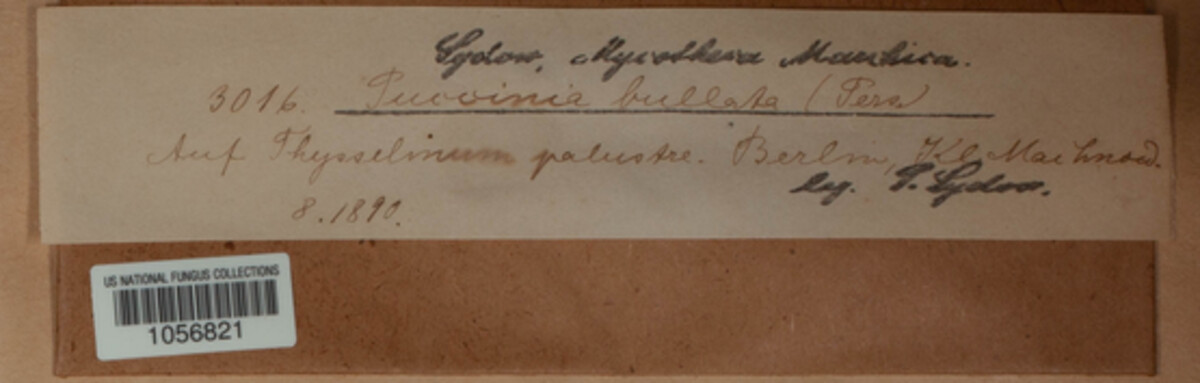 Sydow, Mycotheca Marchica.
3016. Puccinia bullata (Pers)
Auf Thysselinum palustre. Berlin, Kl. Machnow.
leg. P. Sydow.
8.1890.
US NATIONAL FUNGUS COLLECTIONS
1056821